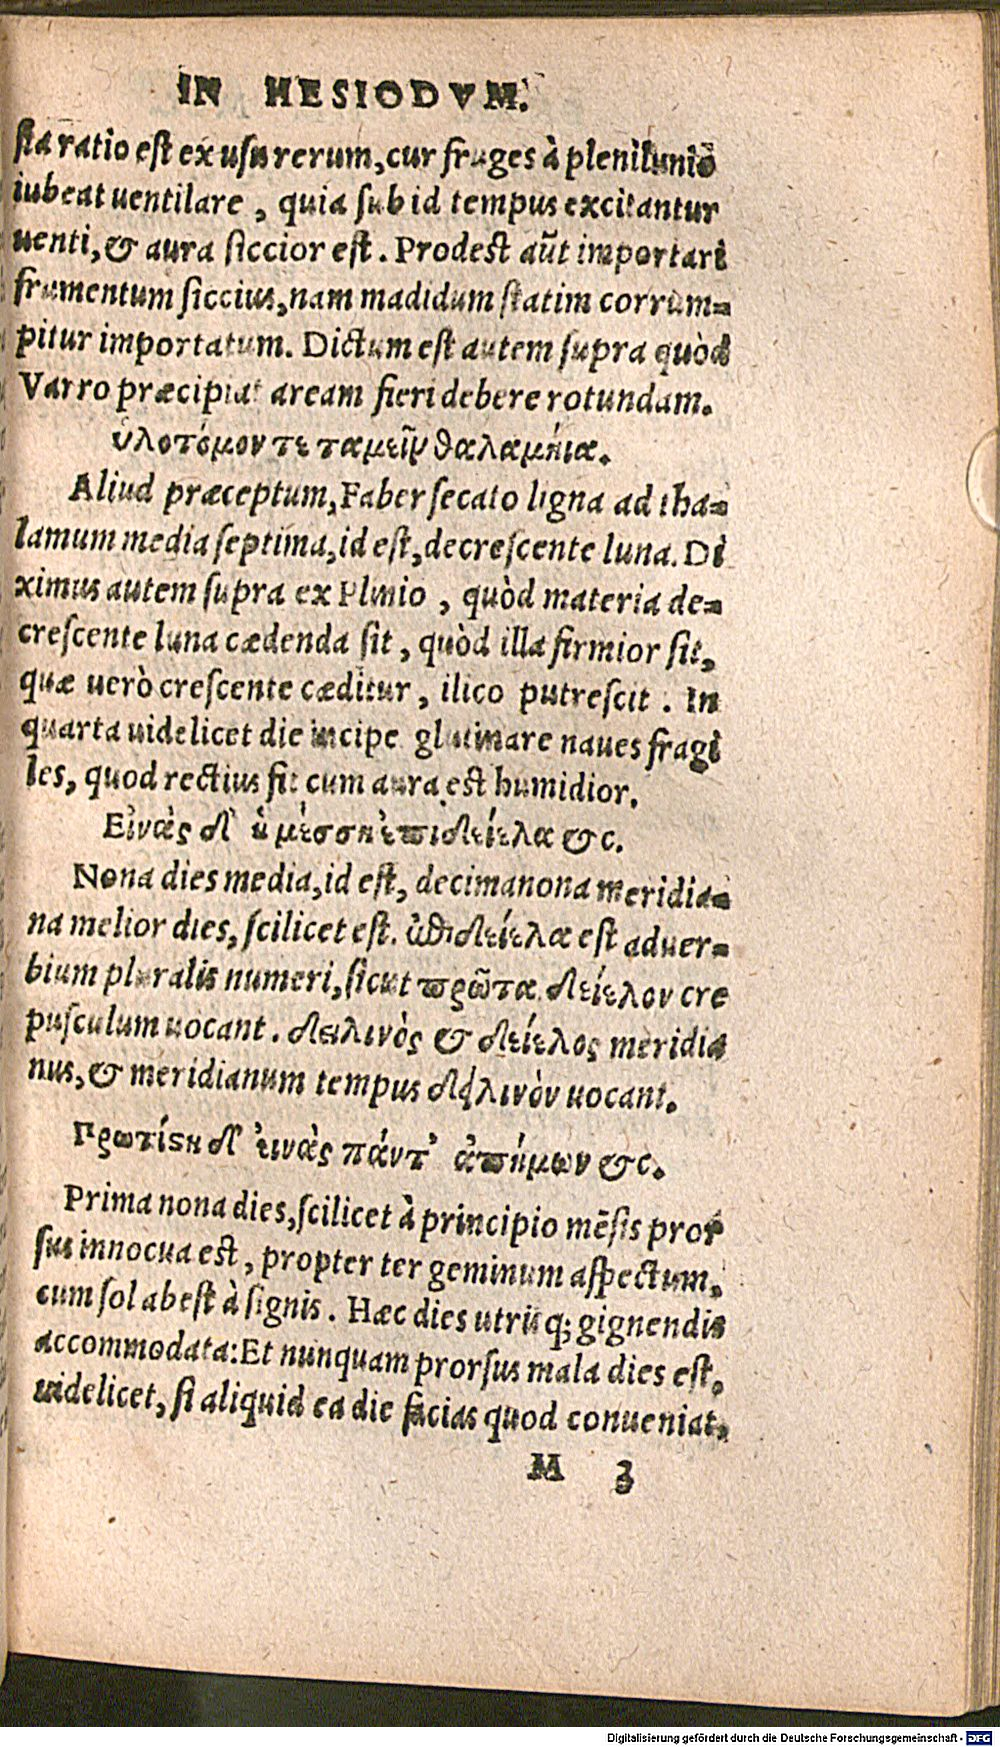 IN HESIODVM.
sta ratio est ex usu rerum, cur fruges à plenilunio
iubeat uentilare, quia sub id tempus excitantur
uenti, & aura siccior est. Prodest aūt importari
frumentum siccius, nam madidum statim corrum=
pitur importatum. Dictum est autem supra quòd
Varro præcipiat aream fieri debere rotundam.
ὑλοτόμον τε ταμεῖν θαλαμήια.
Aliud præceptum, Faber secato ligna ad tha=
lamum media septima, id est, decrescente luna. Di
ximus autem supra ex Plinio, quòd materia de=
crescente luna cædenda sit, quòd illa firmior sit,
quæ uerò crescente cæditur, ilico putrescit. In
quarta uidelicet die incipe glutinare naues fragi
les, quod rectius fit cum aura est humidior.
Εἰνὰς δ' ἡ μέσση ἐπιδείελα &c.
Nona dies media, id est, decimanona meridia=
na melior dies, scilicet est. ὠθιδείελα est aduer=
bium pluralis numeri, sicut πρῶτα. δείελον cre
pusculum uocant. δειλινὸς & δείελος meridia
nus, & meridianum tempus δειλινὸν uocant.
Πρωτίςη δ' εἰνὰς πάντ' ἀπήμων &c.
Prima nona dies, scilicet à principio mēsis pror
sus innocua est, propter ter geminum aspectum,
cum sol abest à signis. Hæc dies utriisq; gignendis
accommodata: Et nunquam prorsus mala dies est,
uidelicet, si aliquid ea die facias quod conueniat,
M 3
Digitalisierung gefördert durch die Deutsche Forschungsgemeinschaft - DFG